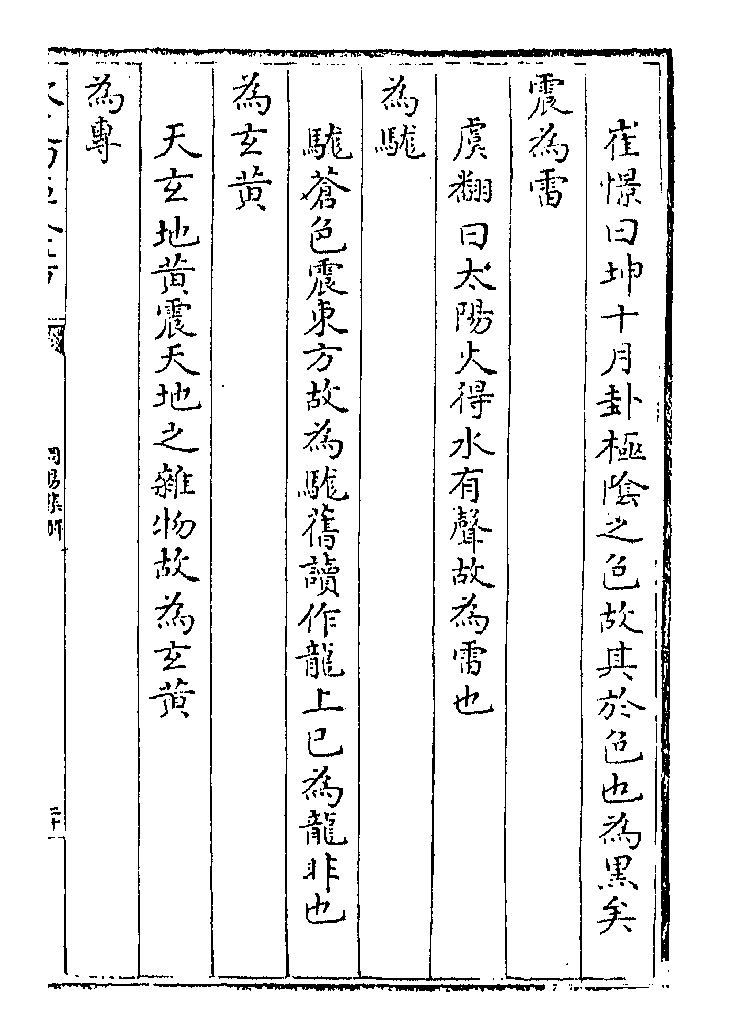 崔憬曰坤十月卦極陰之色故其於色也為黒矣
震為雷
虞翻曰太陽火得水有聲故為雷也
為駹
駹蒼色震東方故為駹舊讀作龍上已為龍非也
為玄黄
天玄地黄震天地之雜物故為玄黄
為專
周易集解